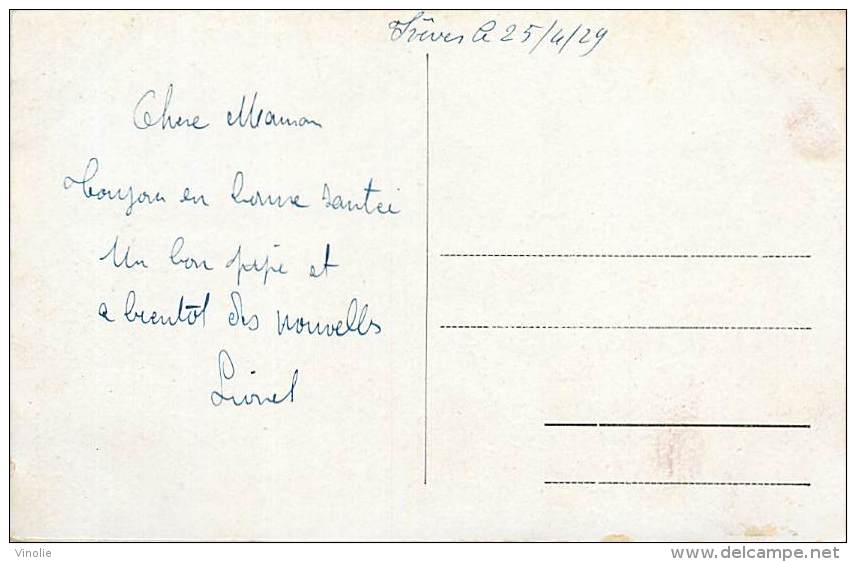 Trêves le 25/4/29
Chere Maman
Toujour en bonne santei
Un bon pipi et
a bientôt des nouvelles
Lionel
Vinolie
delcampe.net